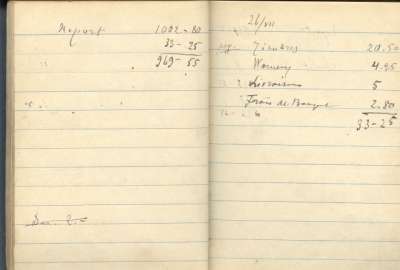 Report 1002 - 80
33 - 25
969 - 55
26/VII
Timbres 20.50
4.95
5
Frais de Banque 2.80
33 - 25